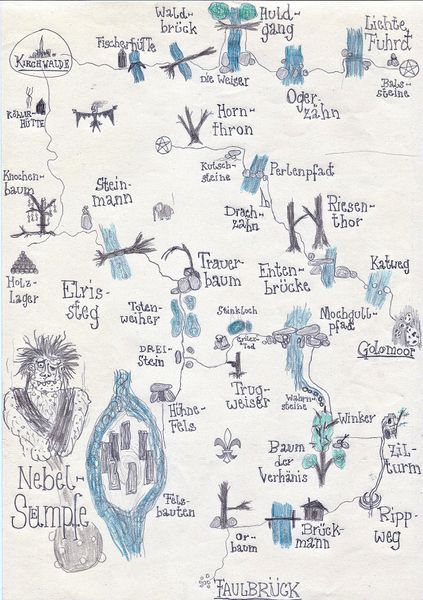 Wald-
brück
Huld-
gang
Lichte
Fuhrt
Fischerhütte
KIRCHWALDE
Die Weiser
Oger-
zähn
Babs-
steine
KÖHLER-
HÜTTE
Horn-
thron
Kutsch-
steine
Perlenpfad
Knochen-
baum
Stein-
mann
Drach-
zahn
Riesen-
thor
Holz-
Lager
Elris-
steg
Trauer-
baum
Enten-
brücke
Katweg
Toten-
weiher
Steinkloch
Mochgull-
pfad
Golomoor
DREI-
Stein
Ritter-
Tod
Trug-
weiser
Wahrn-
steine
Hühne-
Fels
Winker
Baum
der
Verhänis
Zil-
turm
Nebel-
Sümpfe
Fels-
bauten
Ripp-
weg
Or-
baum
Brück-
mann
FAULBRÜCK